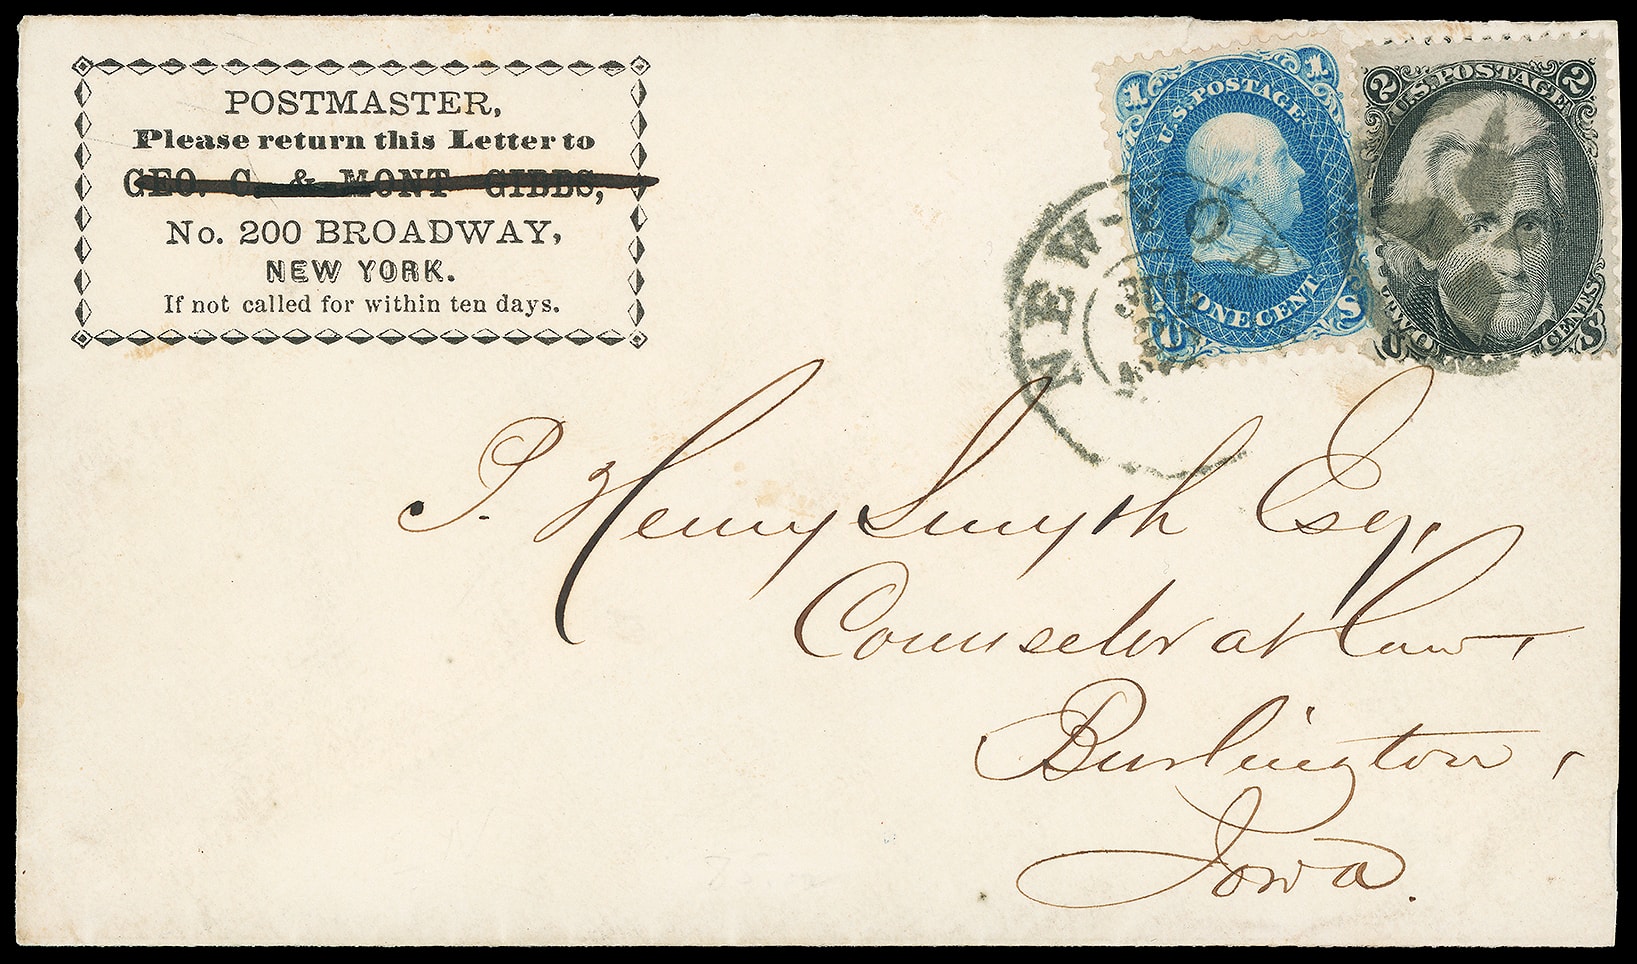 POSTMASTER,
Please return this Letter to
GEO. C. & MONT GIBBS,
No. 200 BROADWAY,
NEW YORK.
If not called for within ten days.
1 1
U.S. POSTAGE.
ONE CENT
U S
2 2
U.S. POSTAGE
TWO CENTS
U S
NEW-YORK
P. Henry Smyth Esq,
Counselor at law,
Burlington,
Iowa.